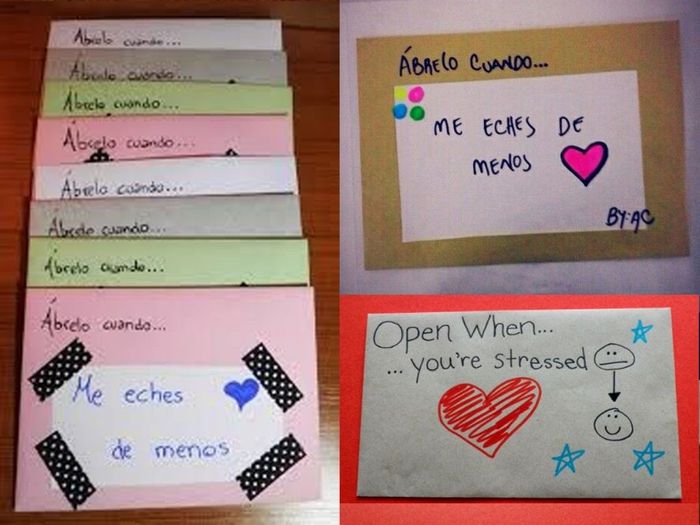 Ábrelo cuando...
Ábrelo cuando...
Ábrelo cuando...
Ábrelo cuando...
Ábrelo cuando...
Ábrelo cuando...
Ábrelo cuando...
Ábrelo cuando...
Me eches
de menos
ÁBRELO CUANDO...
ME ECHES DE
MENOS
BY:AC
Open When...
...you're stressed